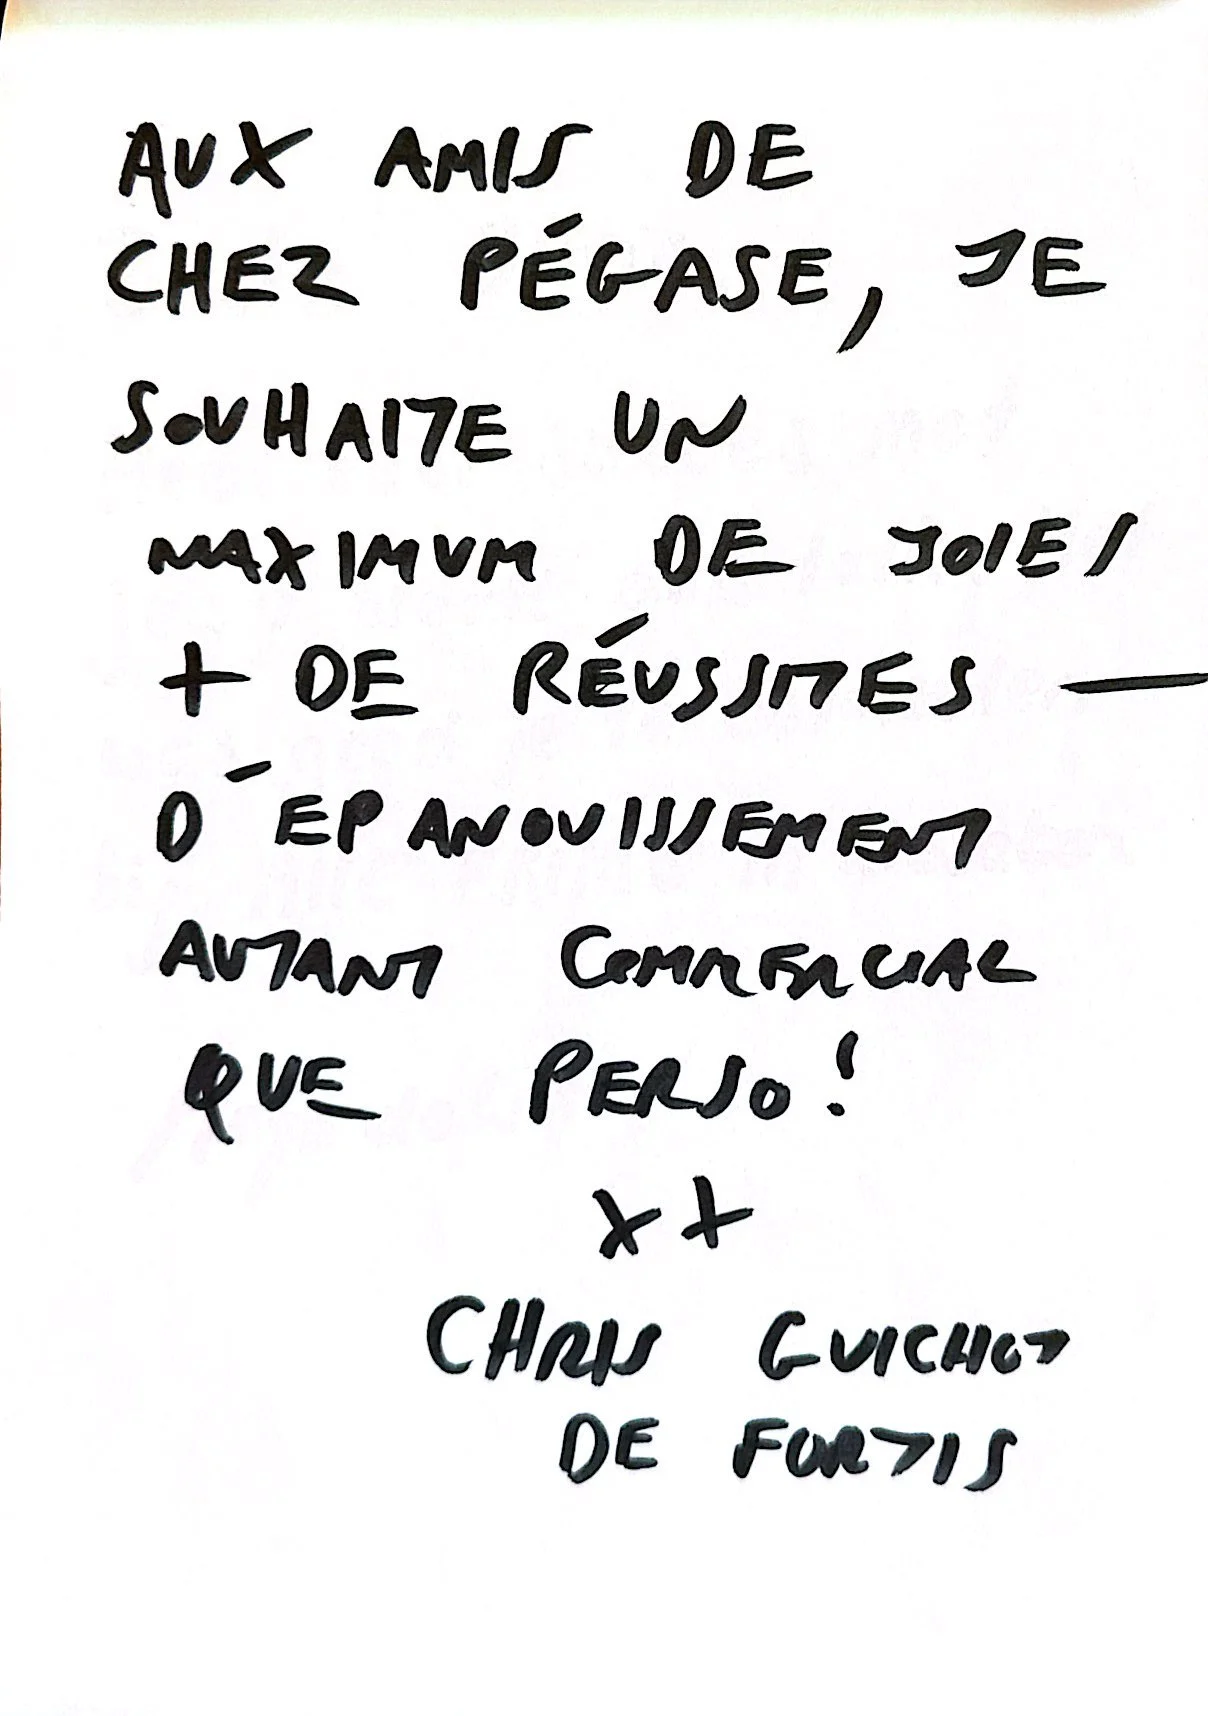 AUX AMIS DE
CHEZ PÉGASE, JE
SOUHAITE UN
MAXIMUM DE JOIES
+ DE RÉUSSITES —
D'EPANOUISSEMENT
AUTANT COMMERCIAL
QUE PERSO!
XX
CHRIS GUICHOT
DE FORTIS